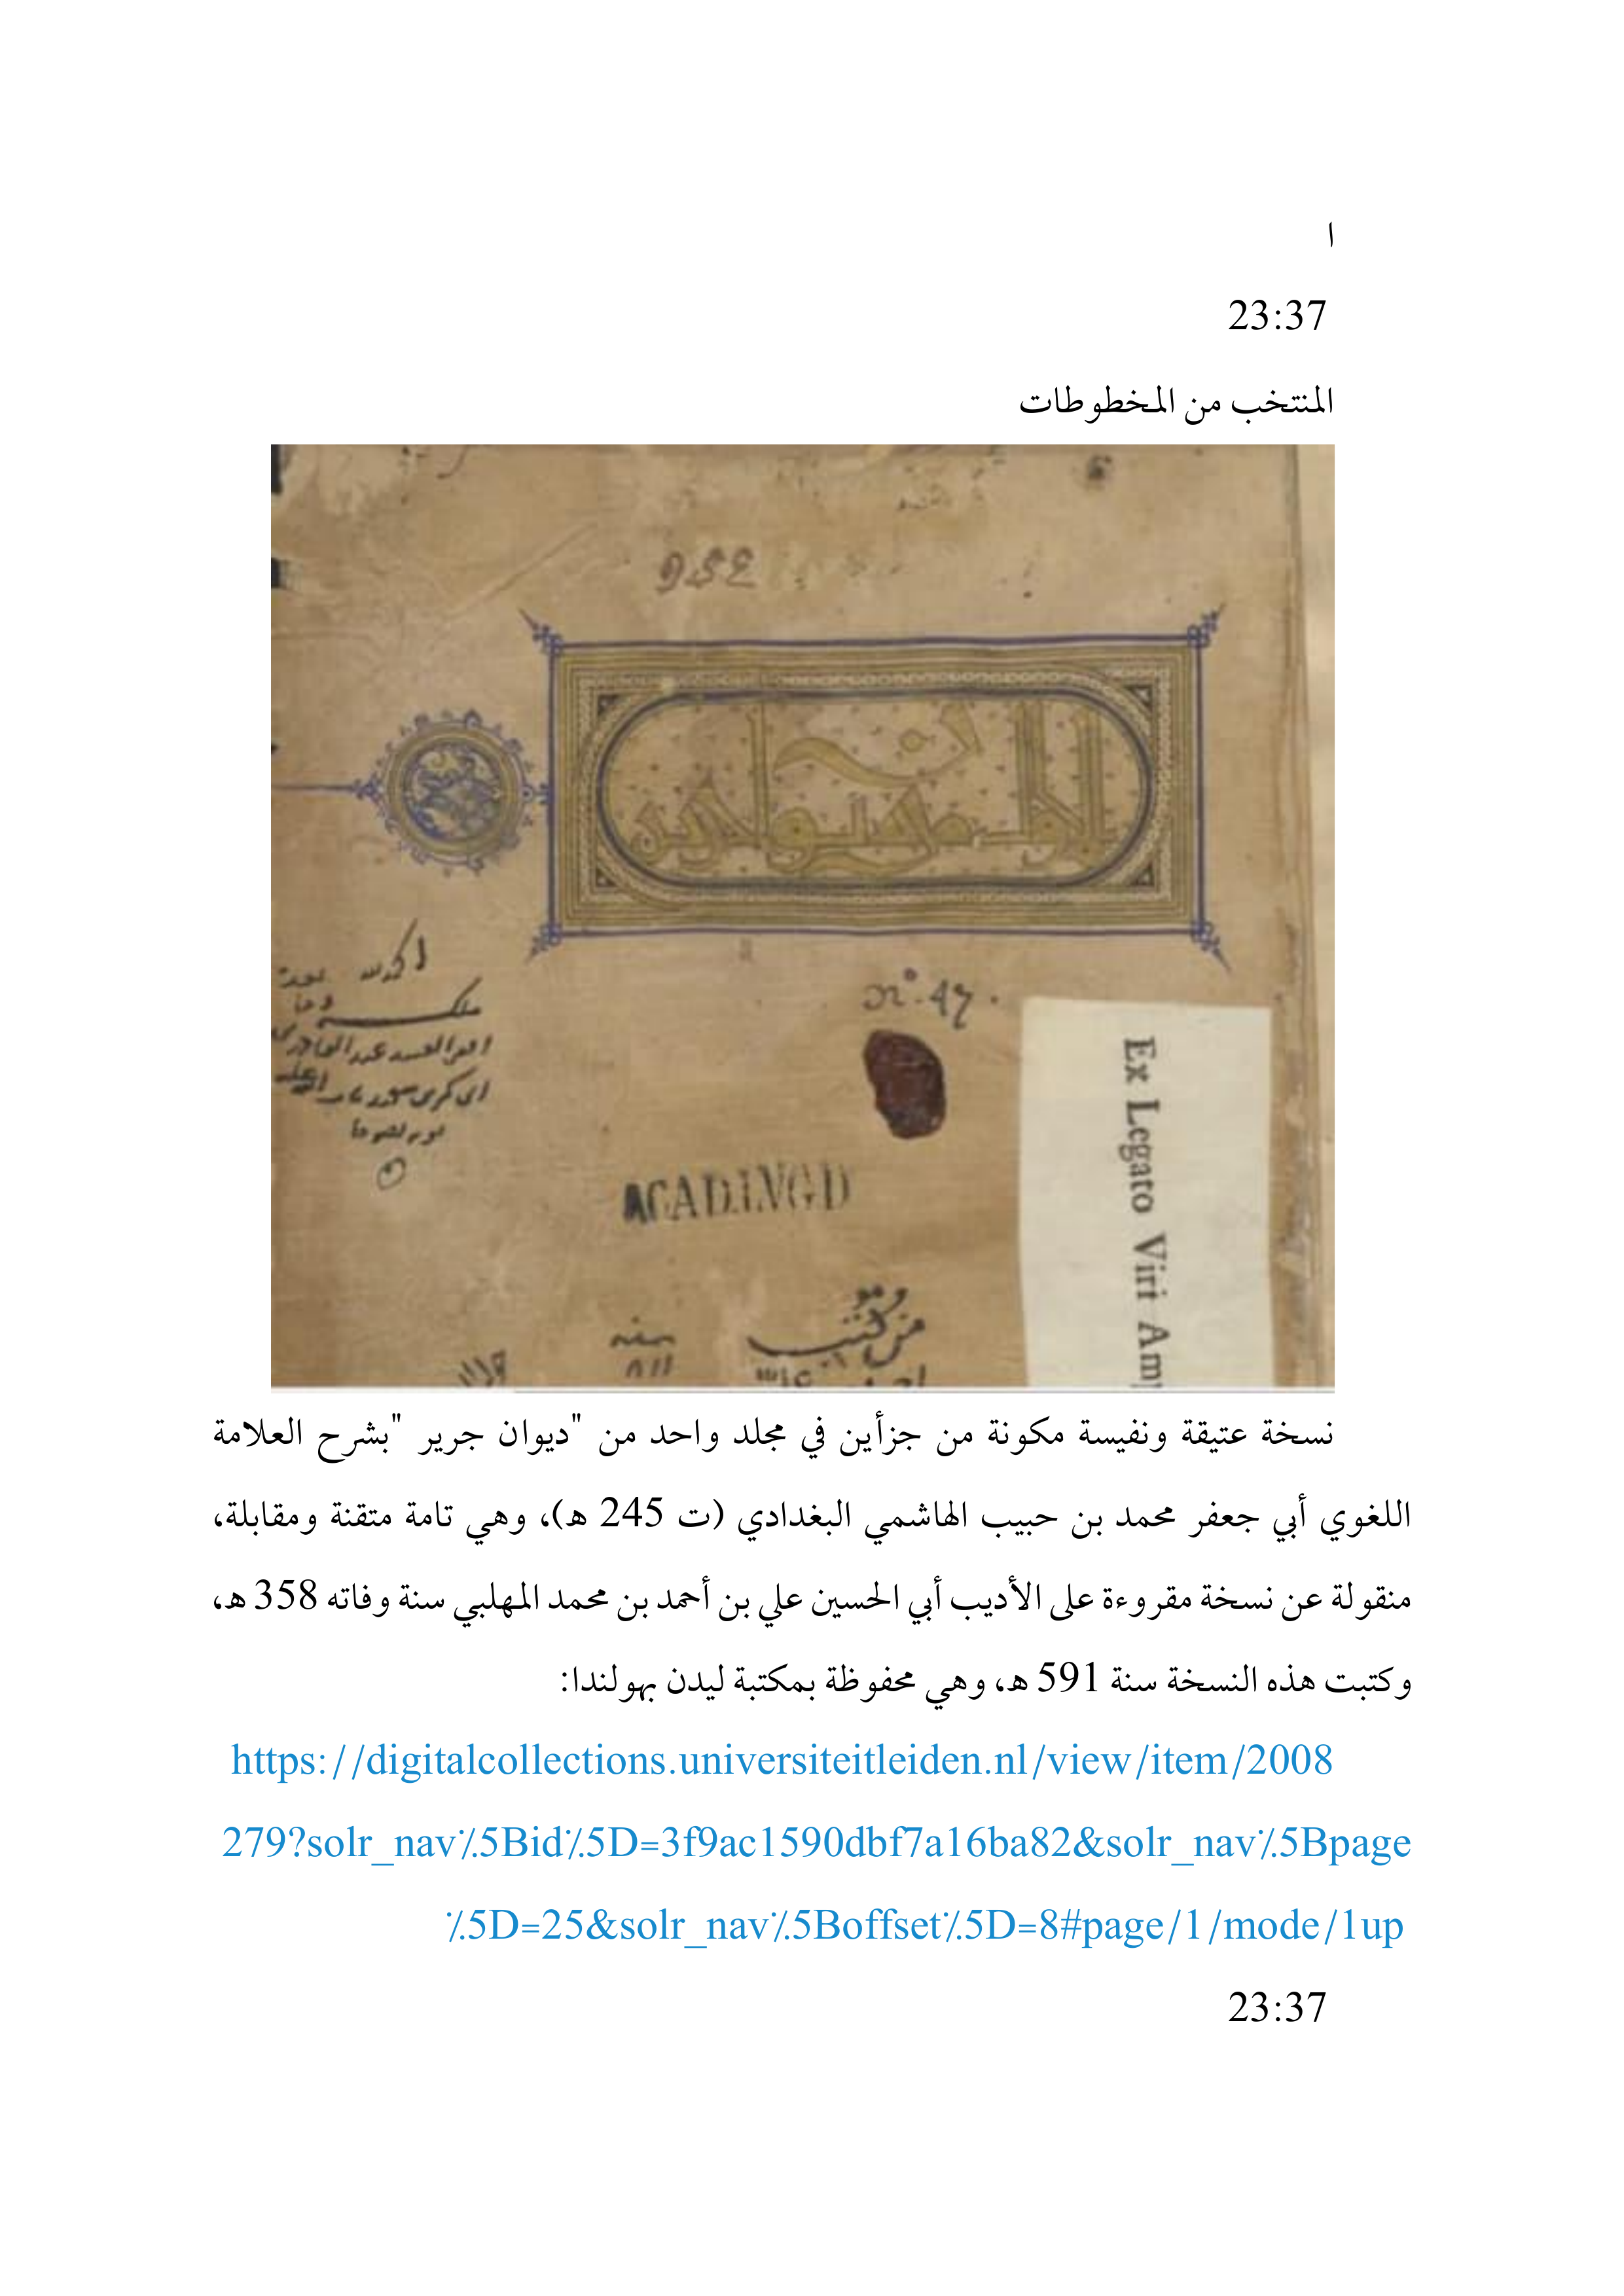 ا
23:37
المنتخب من المخطوطات
نº.47.
Ex Legato Viri Am
ACAD.LVGD
من كتب
سنة
٨١١
نسخة عتيقة ونفيسة مكونة من جزأين في مجلد واحد من "ديوان جرير "بشرح العلامة
اللغوي أبي جعفر محمد بن حبيب الهاشمي البغدادي (ت 245 هـ)، وهي تامة متقنة ومقابلة،
منقولة عن نسخة مقروءة على الأديب أبي الحسين علي بن أحمد بن محمد المهلبي سنة وفاته 358 هـ،
وكتبت هذه النسخة سنة 591 هـ، وهي محفوظة بمكتبة ليدن بهولندا:
https://digitalcollections.universiteitleiden.nl/view/item/2008
279?solr_nav٪5Bid٪5D=3f9ac1590dbf7a16ba82&solr_nav٪5Bpage
٪5D=25&solr_nav٪5Boffset٪5D=8#page/1/mode/1up
23:37